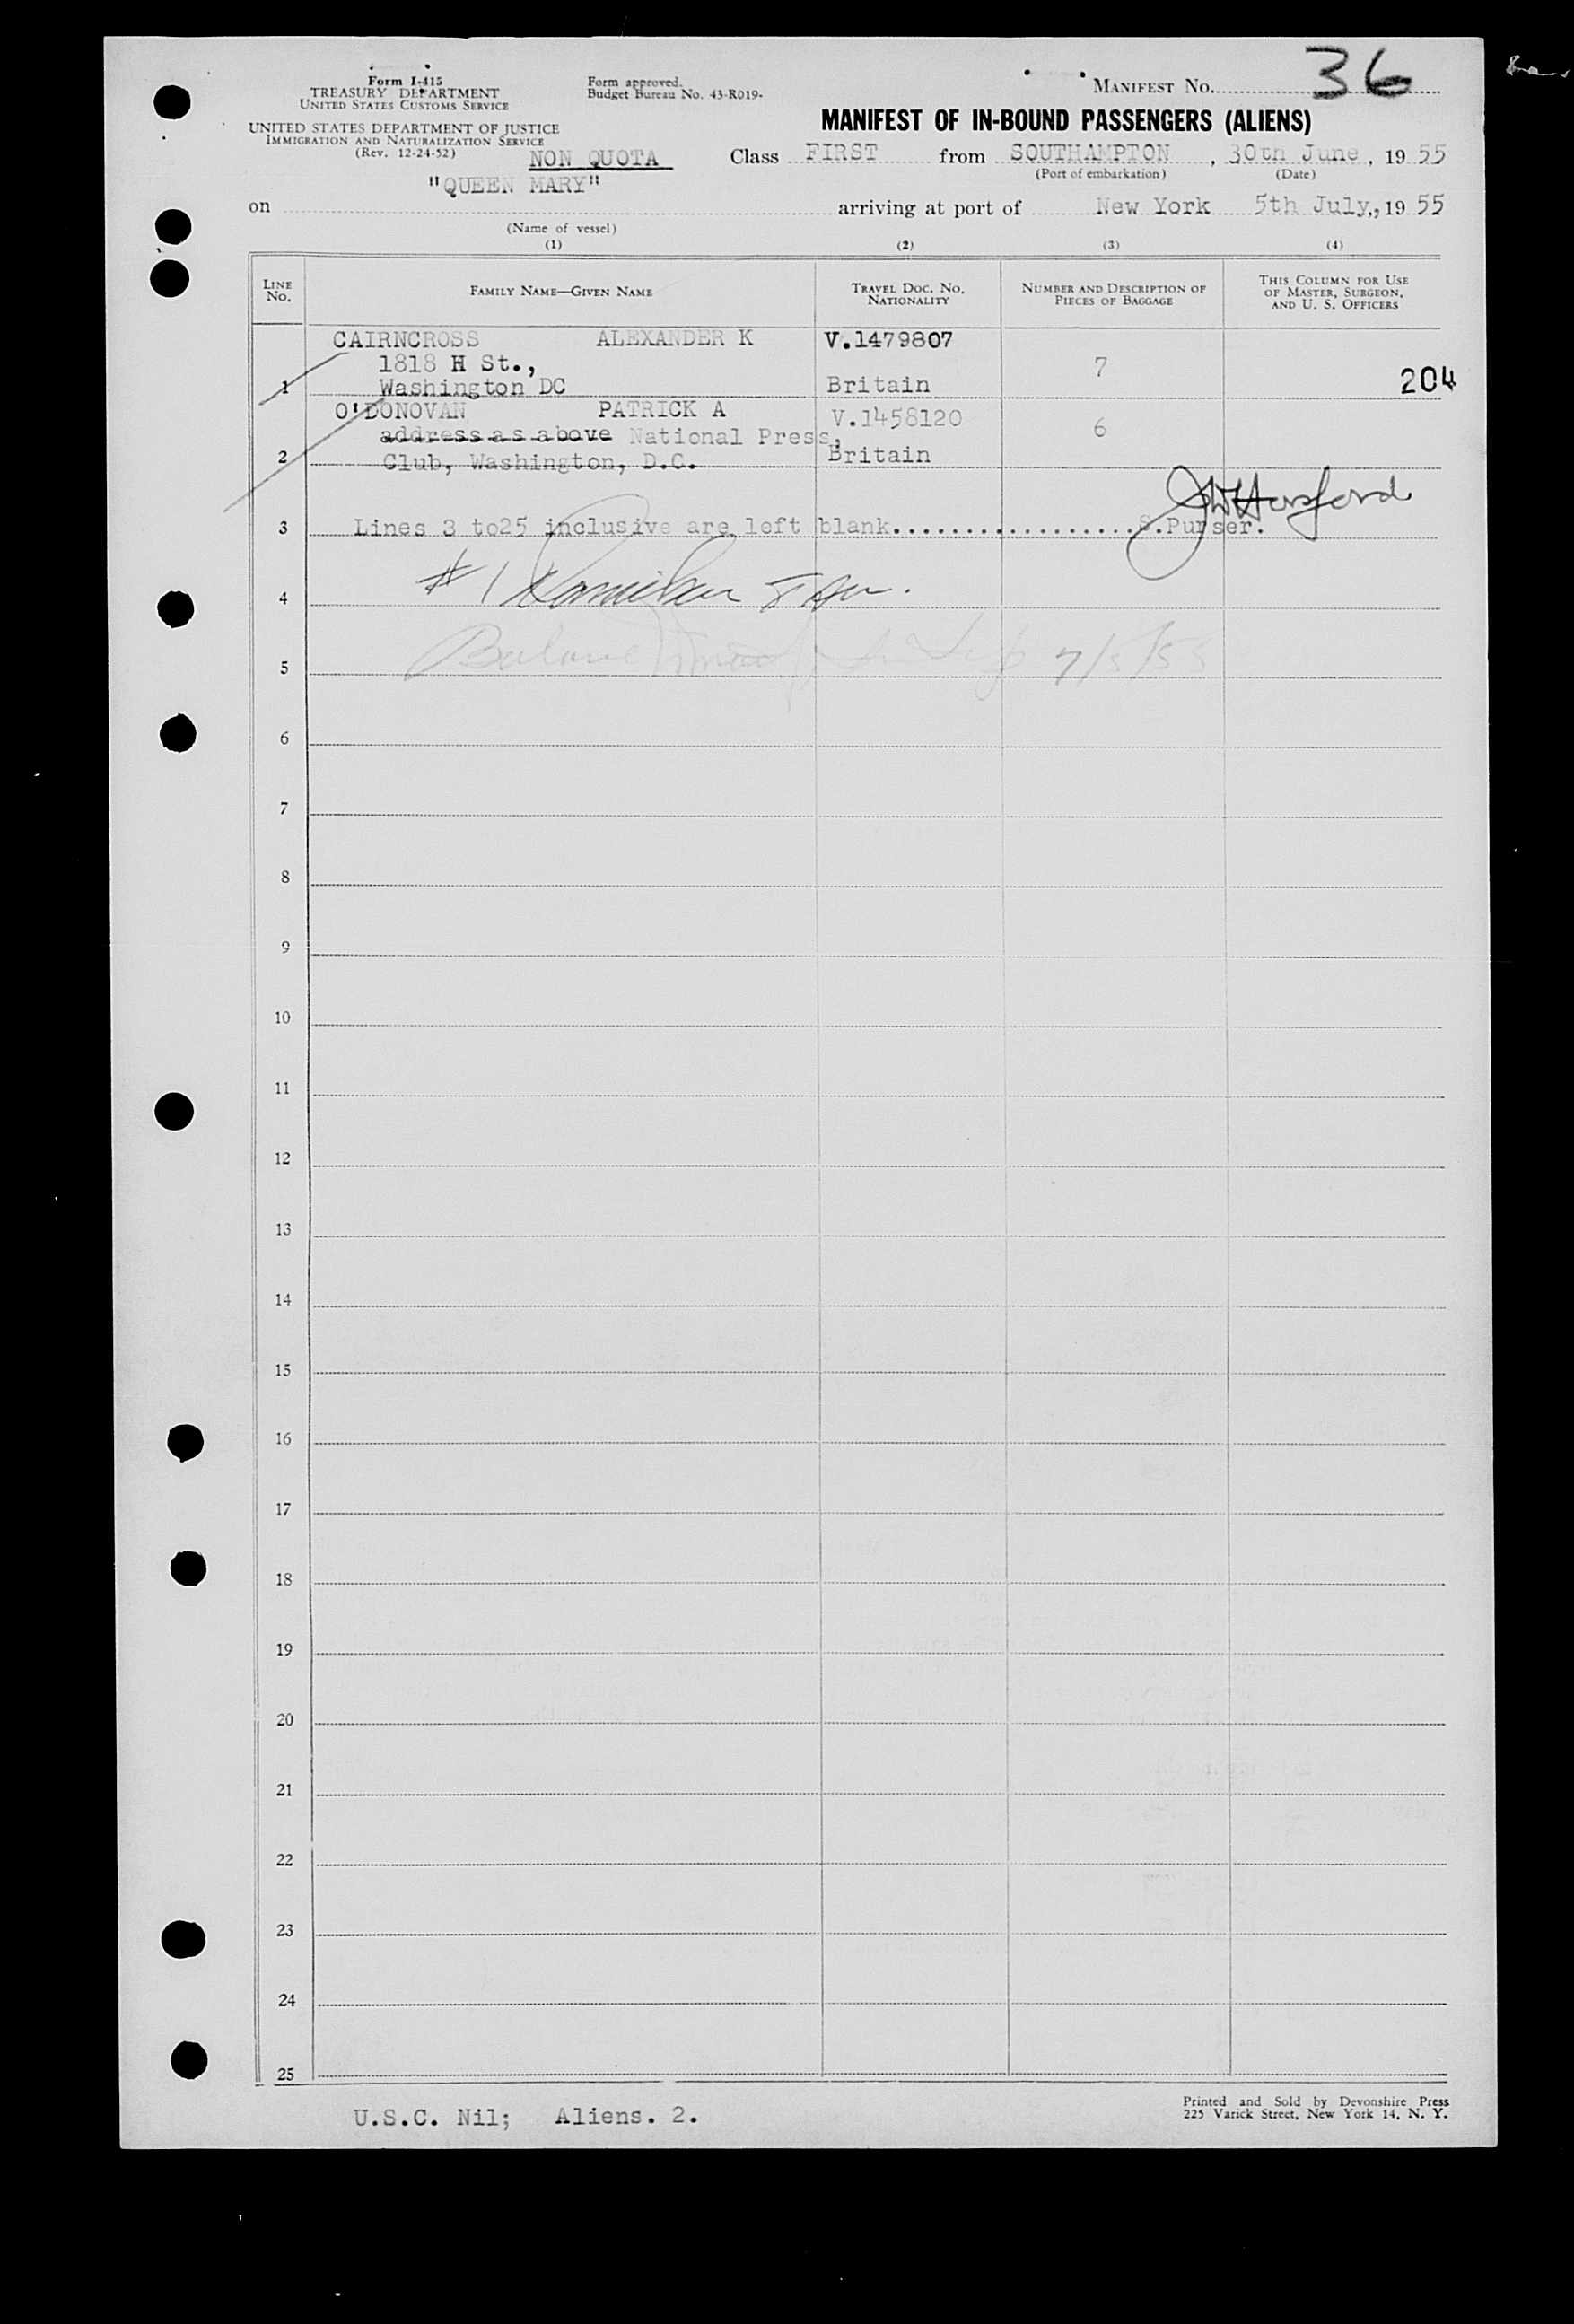 Form I-415
TREASURY DEPARTMENT
UNITED STATES CUSTOMS SERVICE
Form approved.
Budget Bureau No. 43-R019-
MANIFEST No. 36
UNITED STATES DEPARTMENT OF JUSTICE
IMMIGRATION AND NATURALIZATION SERVICE
(Rev. 12-24-52)
MANIFEST OF IN-BOUND PASSENGERS (ALIENS)
NON QUOTA Class FIRST from SOUTHAMPTON, 30th June, 19 55
(Port of embarkation) (Date)
"QUEEN MARY"
on arriving at port of New York 5th July,, 19 55
(Name of vessel)
(1) (2) (3) (4)
LINE No. FAMILY NAME—GIVEN NAME TRAVEL DOC. NO. NATIONALITY NUMBER AND DESCRIPTION OF PIECES OF BAGGAGE THIS COLUMN FOR USE OF MASTER, SURGEON, AND U. S. OFFICERS
CAIRNCROSS ALEXANDER K V.1479807
1818 H St., 7
1 Washington DC Britain 204
O'DONOVAN PATRICK A V.1458120
address as above National Press, 6
2 Club, Washington, D.C. Britain
3 Lines 3 to25 inclusive are left blank.................S.Purser.
# 1
4
7/5/55
5
6
7
8
9
10
11
12
13
14
15
16
17
18
19
20
21
22
23
24
25
U.S.C. Nil; Aliens. 2.
Printed and Sold by Devonshire Press
225 Varick Street, New York 14, N. Y.